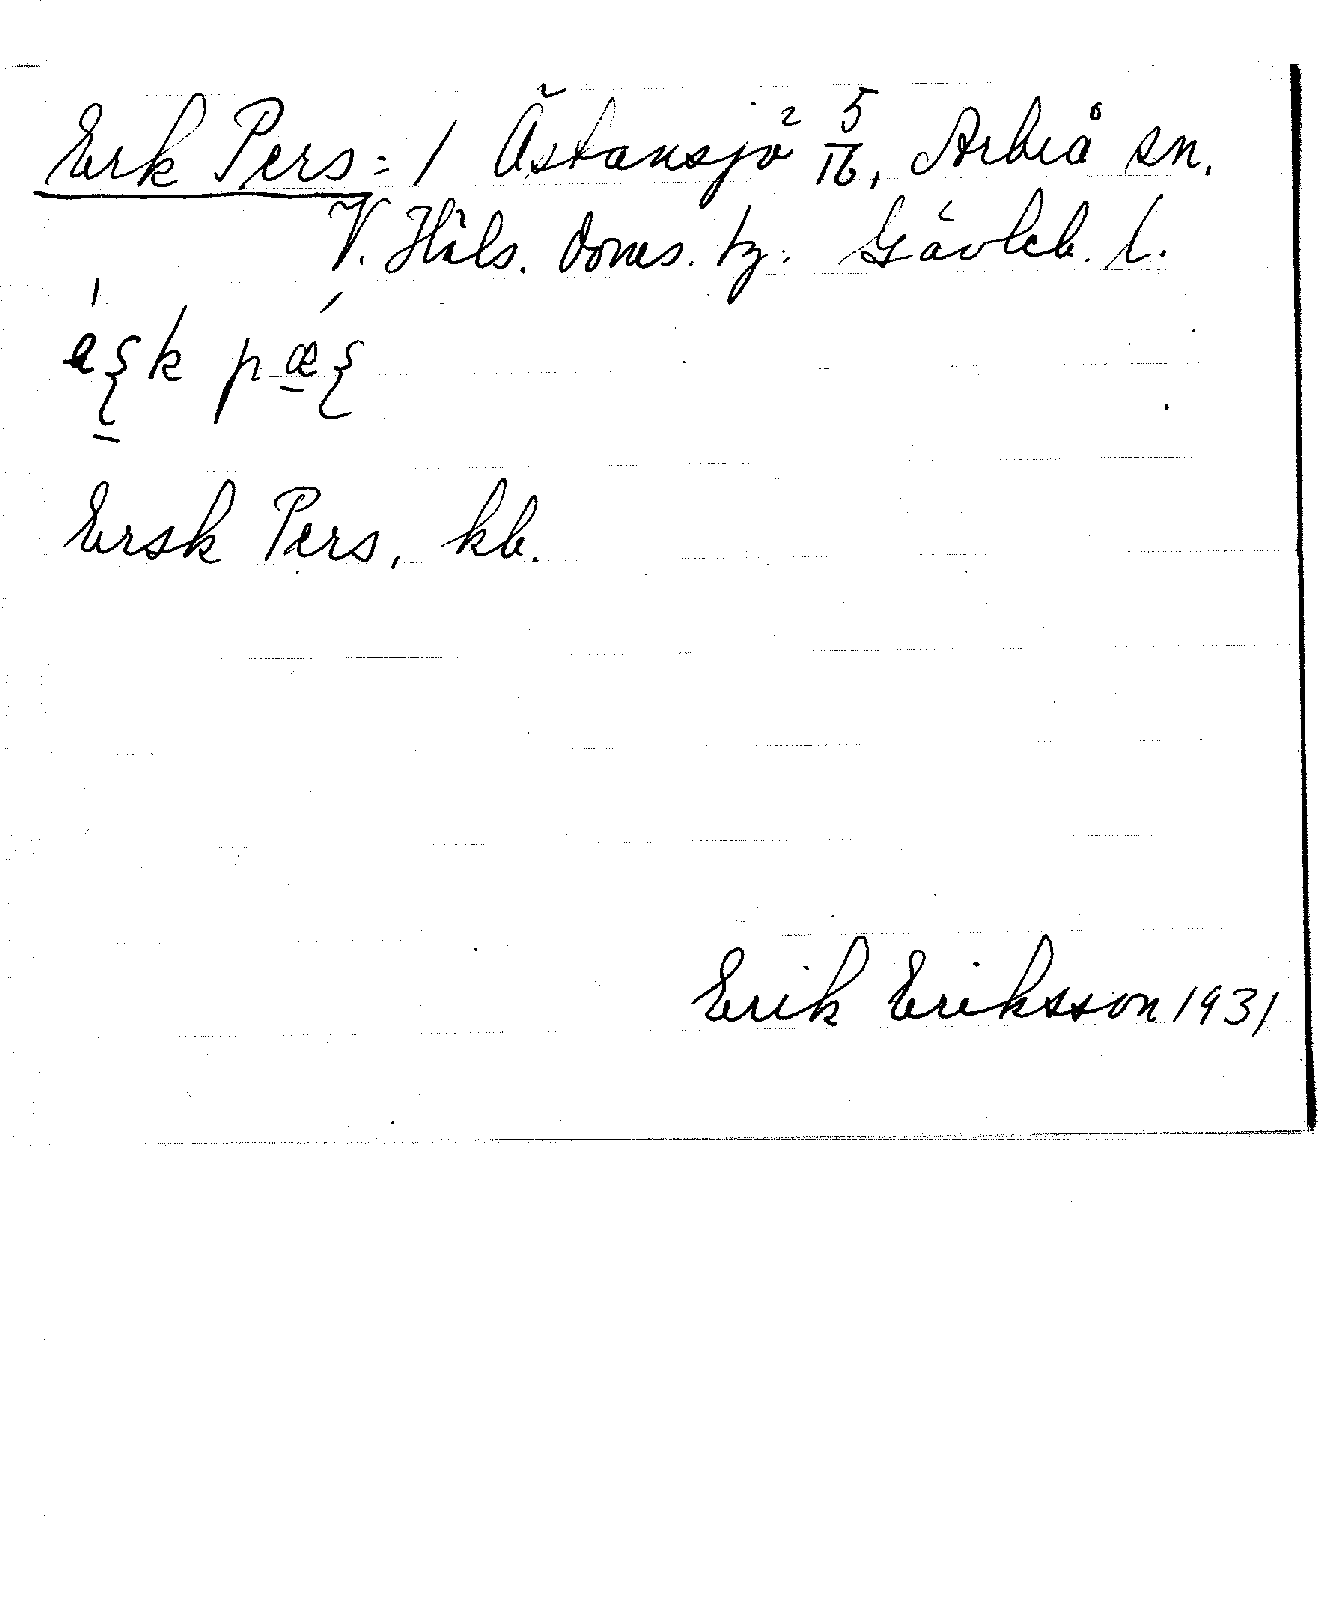 Erk Pers = / Östansjö² 5/16, Arbrå sn.
V. Häls. doms. tg. Gävleb. l.
Ersk Pers, kb.
Erik Eriksson 1931